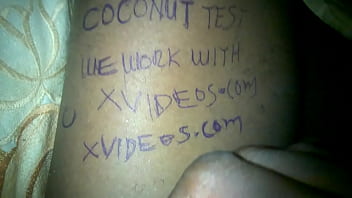 COCONUT TEST
WE WORK WITH
XVIDEOS.COM
XVIDEOS.COM